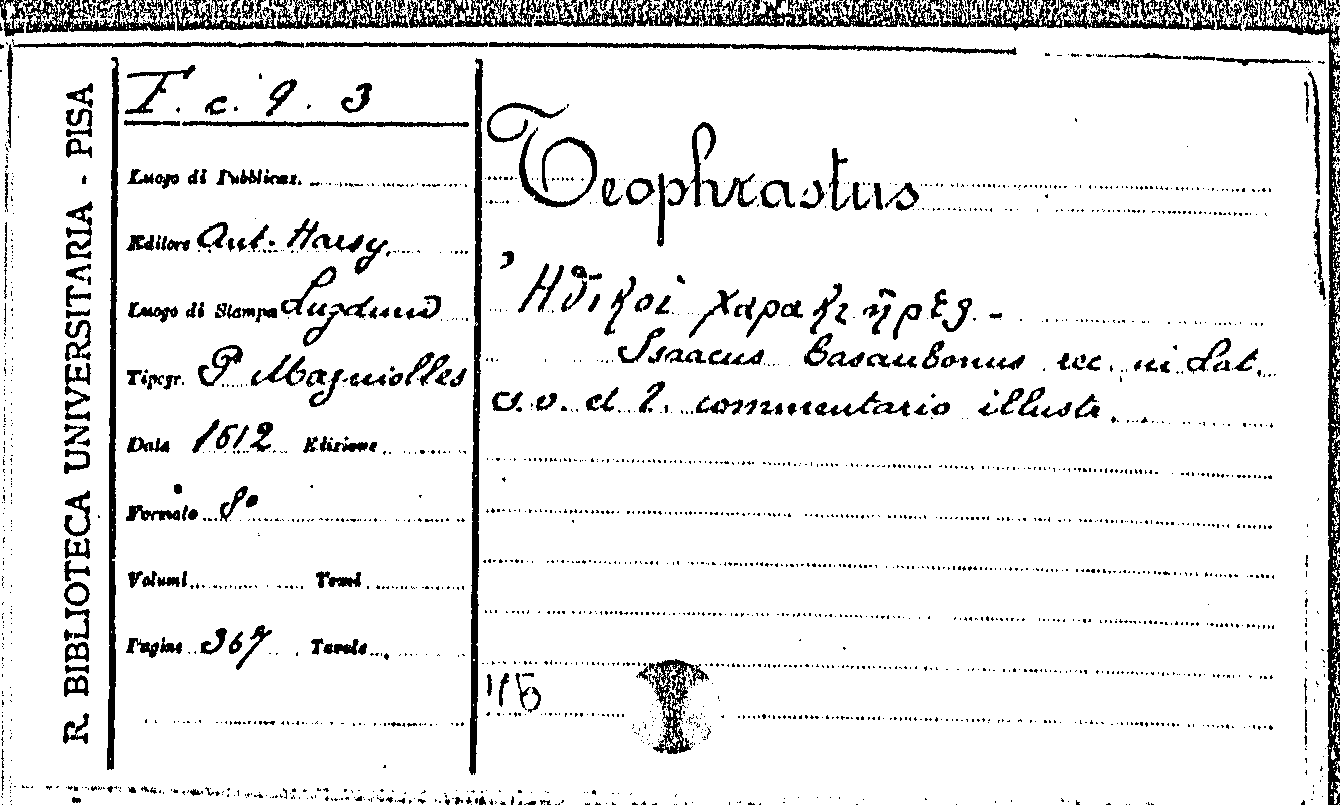 R. BIBLIOTECA UNIVERSITARIA - PISA
F. c. 9. 3
Luogo di Pubblicaz.
Editore Ant. Harsy
Luogo di Stampa Lugduni
Tipogr. P Magniolles
Data 1612 Edizione
Formato 8°
Volumi Tomi
Pagine 367 Tavole
Teophrastus
Ἠθικοί χαρακτῆρες. -
Isaacus Casaubonus rec. in Lat.
s. v. et l. commentario illustr.